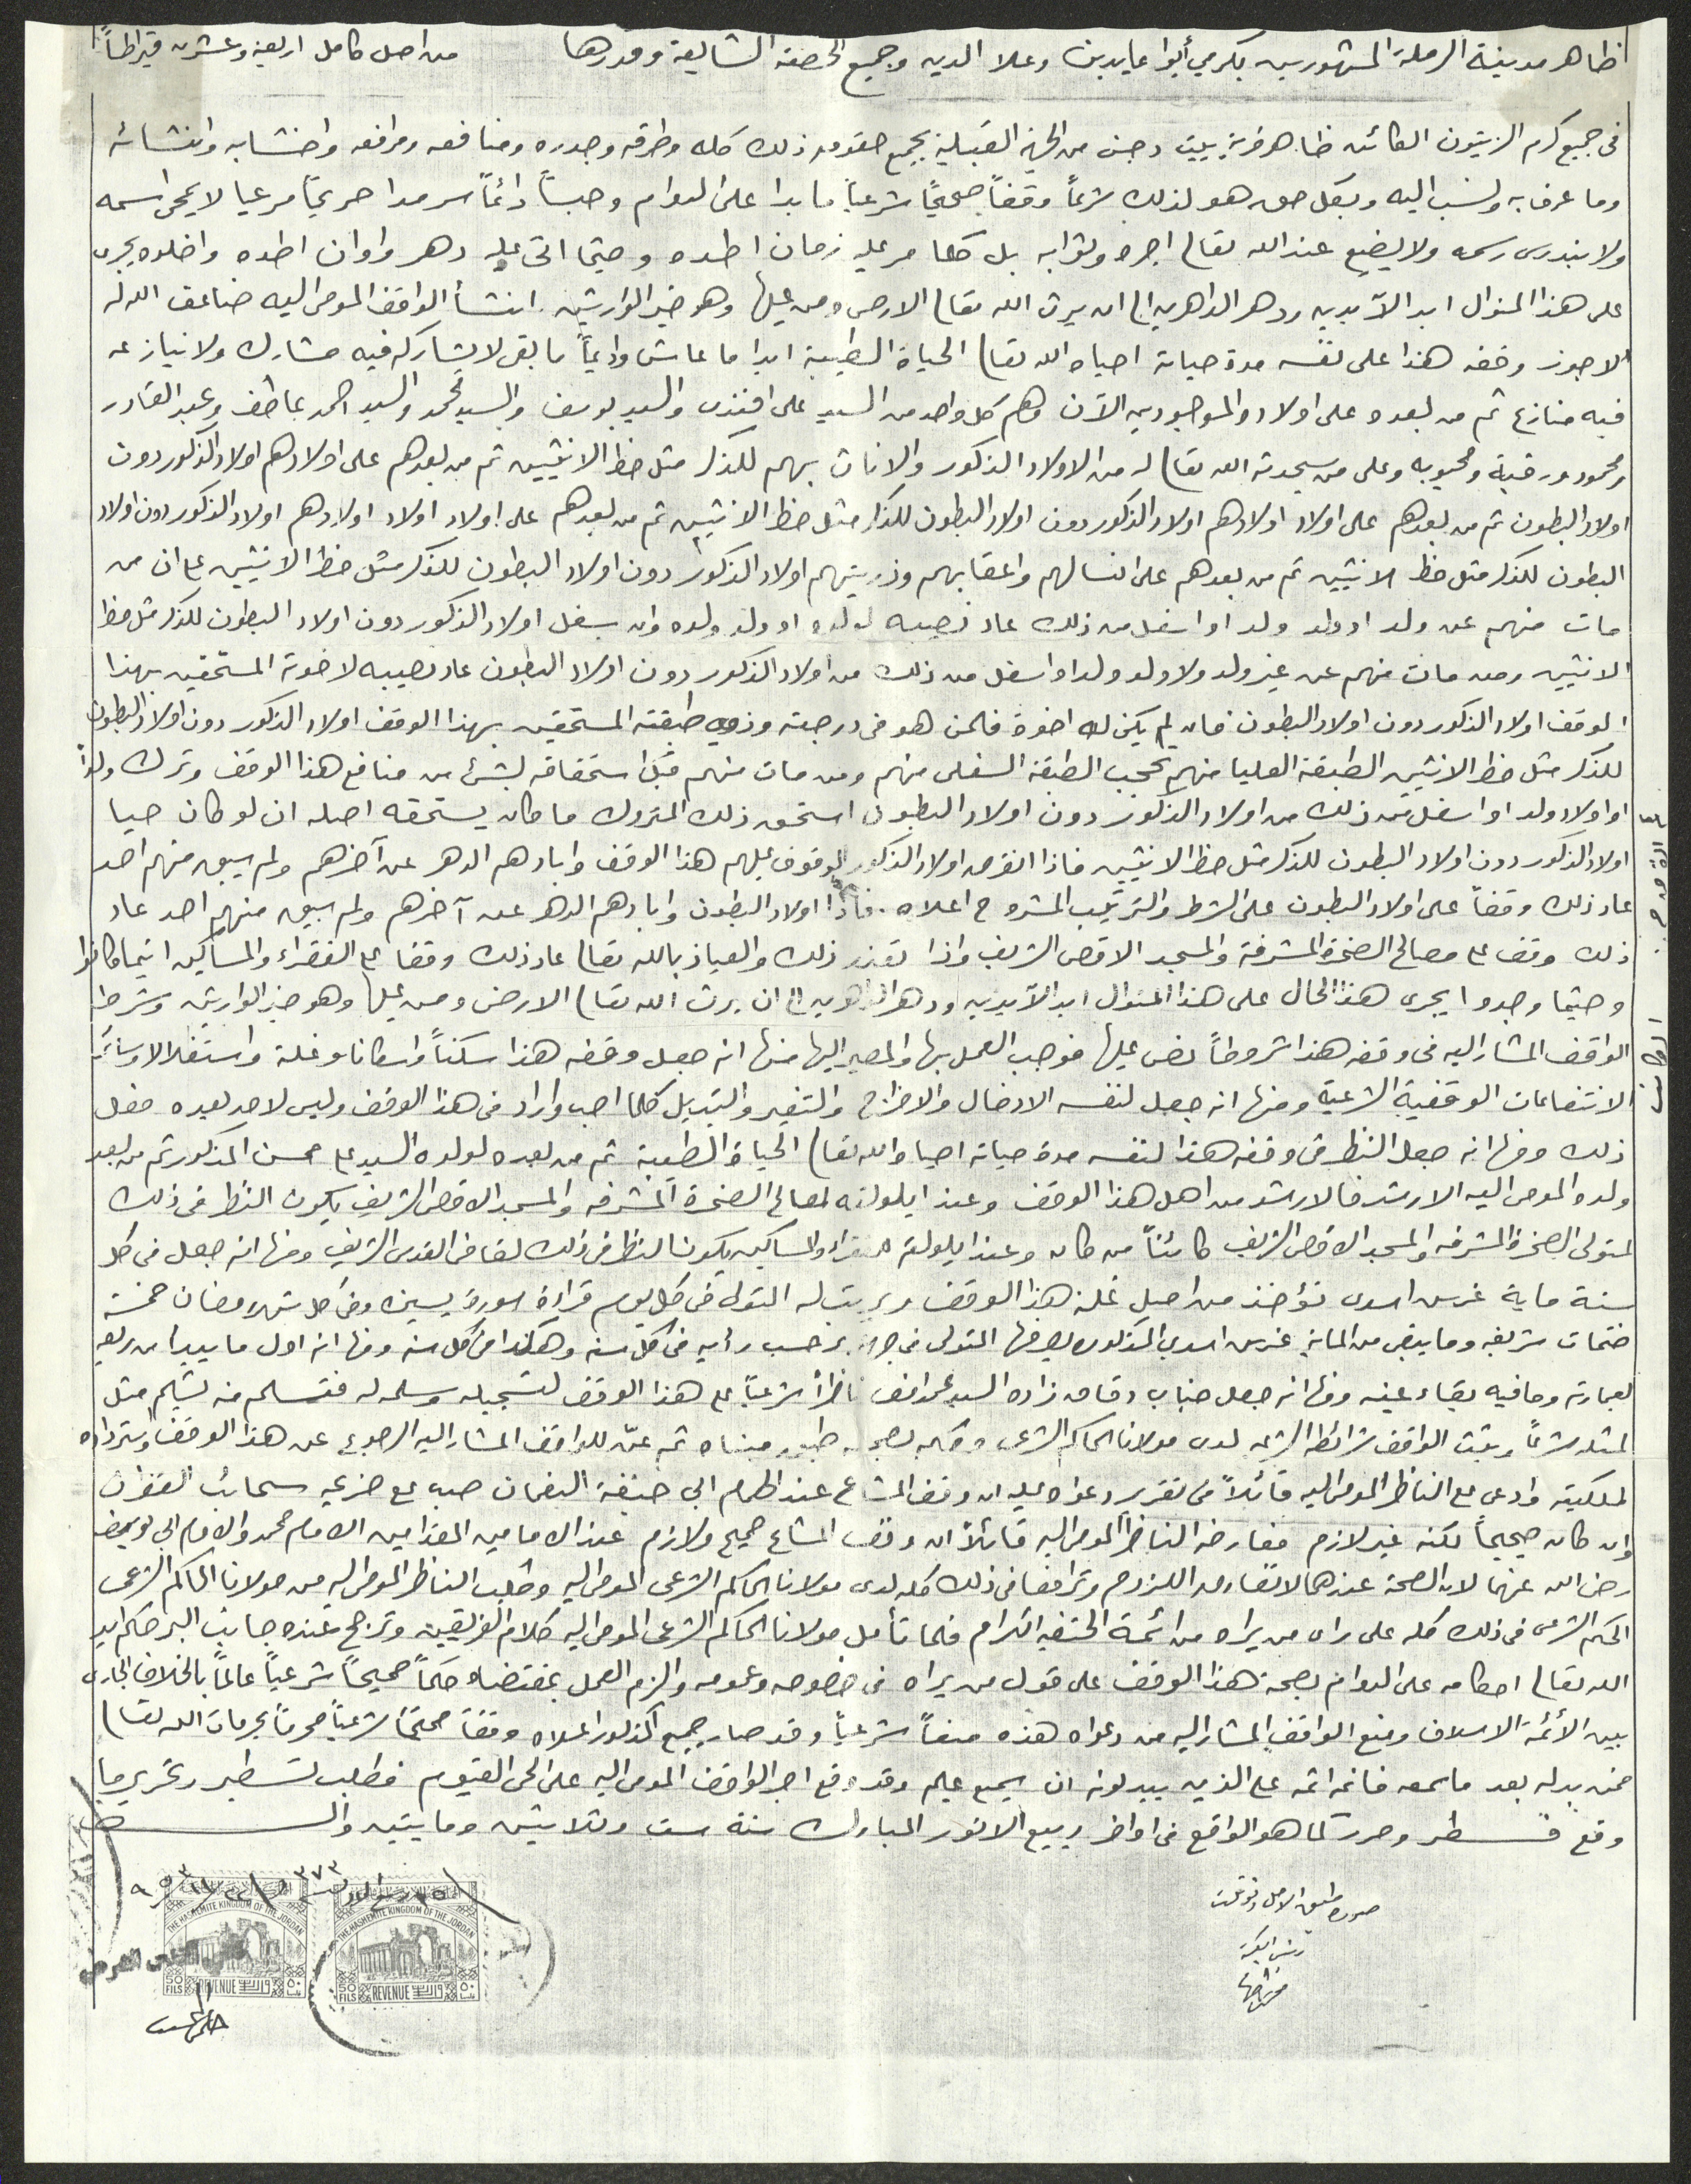 ظاهر مدينة الرملة المشهورين بكرمي أبوا عابدين وعلا الدين وجميع الحصة الشايعة وقدرها من اصل كامل اربعة وعشرون قيراطاً
في جميع كرم الزيتون الكائن ظاهر قرية بيت دجن من الجهة القبلية بجميع حقوق ذلك كله وطرقه وجدره ومنافعه ومرافقه واخشابه وانشائه
وما عرف به ونسب اليه وبكل حق هو لذلك شرعاً وقفاً صحيحاً شرعياً مابدا على الدوام وحبساً دائماً سرمدا حريّاً مرعيا لا يمحى اسمه
ولا يندرس رسمه ولا يضيع عند الله تعالى اجره وثوابه بل كلما مر عليه زمان اطده وحيثما اتى عليه دهر واوان اطده واخلده يجرى
على هذا المنوال ابد الآبدين ودهر الداهرين الى ان يرث الله تعالى الارض ومن عليها وهو خير الوارثين انشأ الواقف الموصى اليه ضاعف الله له
الاجور وقفه هذا على نفسه مدة حياته احياه الله تعالى الحياة الطيبة ابدا ما عاش ودايماً ما بقى لا يشاركه فيه مشارك ولا ينازعه
فيه منازع ثم من بعده على اولاده الموجودين الآن وهم كل واحد من السيد على افندى والسيد يوسف والسيد محمد والسيد احمد عاطف وعبد القادر
ومحمود ورقية ومحبوبه وعلى من سيحدثه الله تعالى له من الاولاد الذكور والاناث بهم للذكر مثل حظ الانثيين ثم من بعدهم على اولادهم اولاد الذكور دون
اولاد البطون ثم من بعدهم على اولاد اولادهم اولاد الذكور دون اولاد البطون للذكر مثل حظ الانثيين ثم من بعدهم على اولاد اولاد اولادهم اولاد الذكور دون اولاد
البطون للذكر مثل حظ الانثيين ثم من بعدهم على انسالهم واعقابهم وذريتهم اولاد الذكور دون اولاد البطون للذكر مثل حظ الانثيين على ان من
مات منهم عن ولد او ولد ولد او اسفل من ذلك عاد نصيبه لولده او ولد ولده وان سفل اولاد الذكور دون اولاد البطون للذكر مثل حظ
الانثيين ومن مات منهم عن غير ولد ولا ولد ولد او اسفل من ذلك من اولاد الذكور دون اولاد البطون عاد نصيبه لاخوته المستحقين بهذا
الوقف اولاد الذكور دون اولاد البطون فان لم يكن له اخوة فلمن هو في درجته وذوي طبقته المستحقين بهذا الوقف اولاد الذكور دون اولاد البطون
للذكر مثل حظ الانثيين الطبقة العليا منهم تحجب الطبقة السفلى منهم ومن مات منهم قبل استحقاقه لشئ من منافع هذا الوقف وترك ولداً
او اولاد ولد او اسفل من ذلك من اولاد الذكور دون اولاد البطون استحق ذلك المتروك ما كان يستحقه اصله ان لو كان حيا
اولاد الذكور دون اولاد البطون للذكر مثل حظ الانثيين فاذا انقرض اولاد الذكور الموقوف عليهم هذا الوقف وابادهم الدهر عن آخرهم ولم يبق منهم احد
عاد ذلك وقفاً على اولاد البطون على الشرط والترتيب المشروح اعلاه فاذا اولاد البطون وابادهم الدهر عن آخرهم ولم يبق منهم احد عاد
ذلك وقف على مصالح الصخرة المشرفة والمسجد الاقصى الشريف واذا تعذر ذلك والعياذ بالله تعالى عاد ذلك وقفا على الفقراء والمساكين اينما كانوا
وحيثما وجدوا يجرى هذا الحال على هذا المنوال ابد الآبدين ودهر الداهرين الى ان يرث الله تعالى الارض ومن عليها وهو خير الوارثين وشرط
الواقف المشار اليه فى وقفه هذا شروطاً نص عليها فوجب العمل بها والمصير اليها منها انه جعل وقفه هذا سكناً واسكانا وغلة واستغلالا وسائر
الانتفاعات الوقفية الشرعية ومنها انه جعل لنفسه الادخال والاخراج والتغيير والتبديل كلما احب واراد فى هذا الوقف وليس لاحد بعده فعل
ذلك ومنها انه جعل النظر فى وقفه هذا لنفسه مدة حياته احياه الله تعالى الحياة الطيبة ثم من بعده لولده السيد على محسن المذكور ثم من بعد
ولده الموصى اليه الارشد فالارشد من اهل هذا الوقف وعند ايلولته لمصالح الصخرة المشرفه والمسجد الاقصى الشريف يكون النظر فى ذلك
لمتولى الصخرة المشرفه والمسجد الاقصى الشريف كائناً من كان وعند ايلولته للفقراء والمساكين يكون النظر فى ذلك لقاضى القدس الشريف ومنها انه جعل فى كل
سنة ماية غرش اسدى تؤخذ من اصل غلة هذا الوقف ويرتب له المتولى فى كل يوم قراءة سورة يسين وفى كل شهر رمضان خمسة
ختمات شريفه وما يبقى من الماية غرش اسدى المذكوره يصرفها المتولى فى حسب رأيه فى كل سنه وهكذا فى كل سنه ومنها انه اول ما يبدا من ريعه
بعمارته وما فيه بقاء عينه ومنها انه جعل جناب زاده السيد ناظراً شرعياً على هذا الوقف لتسجيله وسلمه له فتسلمه منه تسليم مثل
لمثله شرعاً وثبت الواقف شرائطه الشرعيه لدى مولانا الحاكم الشرعى ثم عنّ للواقف المشار اليه الرجوع عن هذا الوقف واسترداده
لملكيته وادعى مع الناظر الموصى اليه قائلاً فى تقرير دعواه عليه ان وقف المشاع عند الامام ابى حنيفة النعمان صب على ضريحه سحائب الغفران
وان كان صحيحاً لكنه غير لازم فعارضه الناظر الموصى اليه قائلاً ان وقف المشاع صحيح ولازم عند الامامين الهمامين الامام محمد والامام ابى يوسف
رضى الله عنهما لان الصحة عندهما لا تفارق اللزوم وترافعا فى ذلك كله لدى مولانا الحاكم الشرعى الموصى اليه وطلب الناظر الموصى اليه من مولانا الحاكم الشرعى
الحكم الشرعى فى ذلك كله على راى من يراه من ائمة الحنفية الكرام فلما تأمل مولانا الحاكم الشرعى الموصى اليه كلام الفريقين وترجح عنده جانب البر حكم ايد
الله تعالى احكامه على الدوام بصحة هذا الوقف على قول من يراه فى خصوصه وعمومه والزم العمل بمقتضاه حكماً صحيحاً شرعياً عالماً بالخلاف الجارى
بين الأئمة الاسلاف ومنع الواقف المشار اليه من دعواه هذه منعاً شرعياً وقد صار جميع المذكور اعلاه وقفاً شرعياً محرماً بحرمات الله تعالى
فمن بدله بعد ما سمعه فانما اثمه على الذين يبدلونه ان سميع عليم وقد وقع اجر الواقف الموصى اليه على الحى القيوم فطلب تسطير وتحرير ما
وقع فسطر وحرر كما هو الواقع فى اواخر ربيع الانور المبارك سنة ست وثلاثين ومايتين والف
صورة طبق الاصل
THE HASHEMITE KINGDOM OF THE JORDAN
50 FILS REVENUE
THE HASHEMITE KINGDOM OF THE JORDAN
50 FILS REVENUE